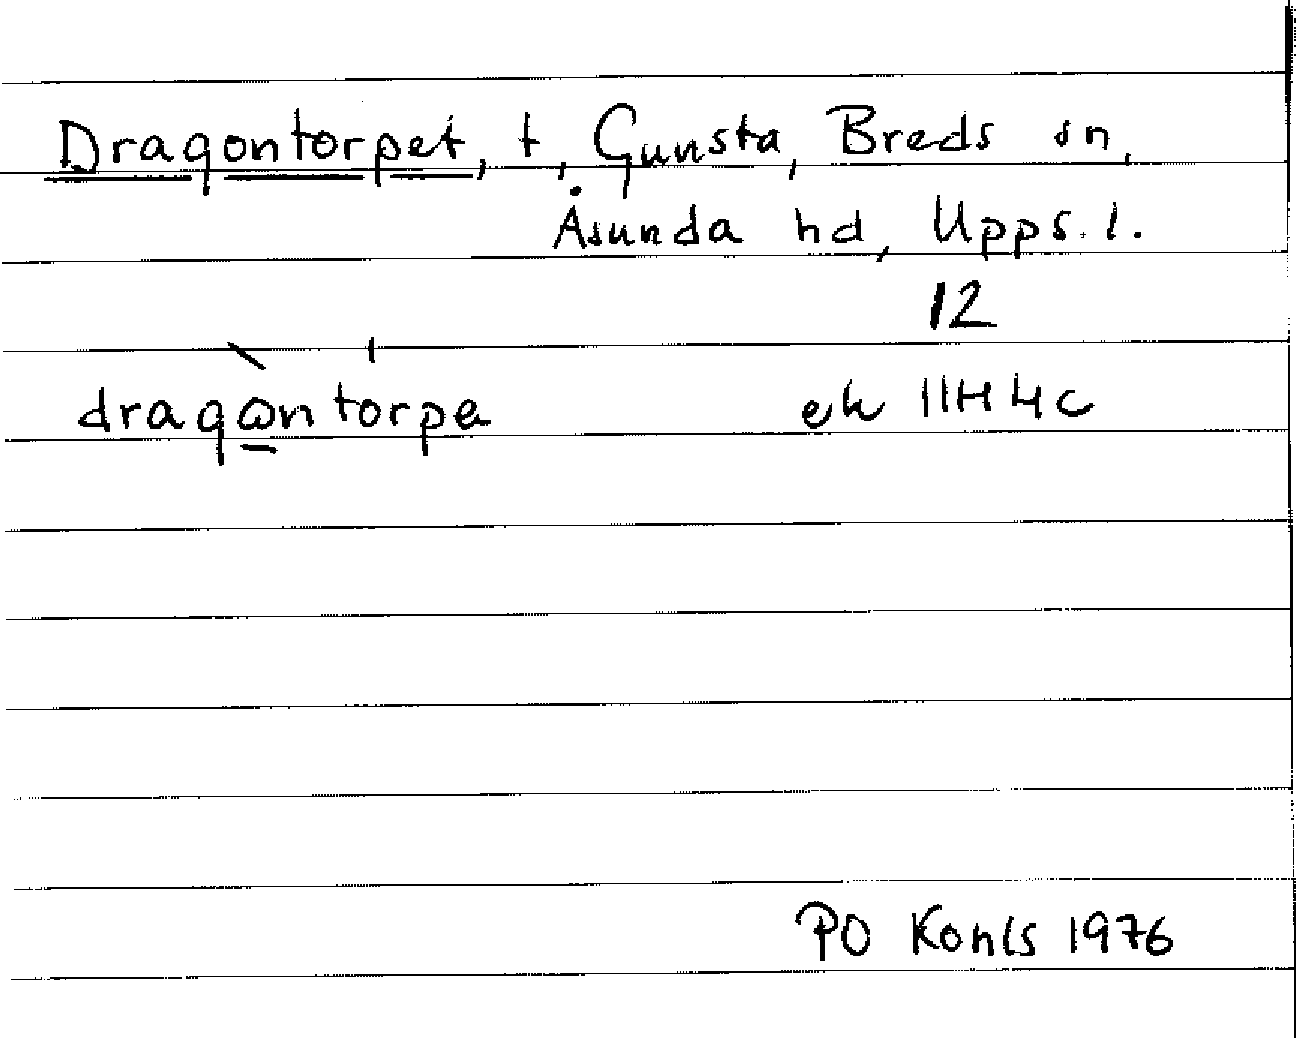 Dragontorpet, t, Gunsta, Breds sn,
Åsunda hd, Upps. l.
12
dragωntorpa
ek 11H 4c
PO Konls 1976